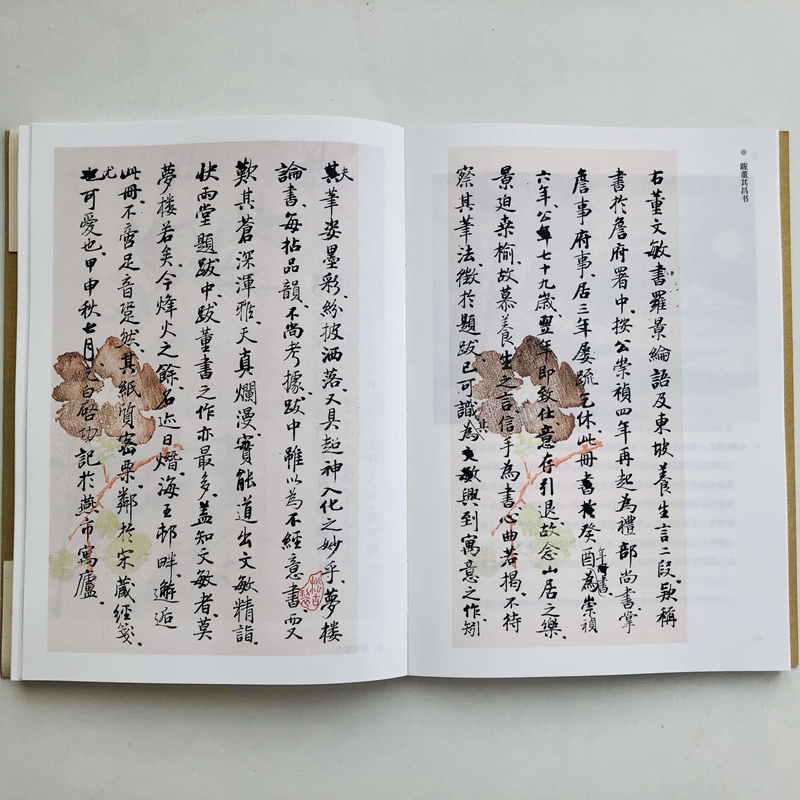 跋董其昌书
右董文敏書羅景綸語及東坡養生言二段、款稱
書於詹府署中、按公崇禎四年再起為禮部尚書掌
詹事府事、居三年屡疏乞休、此冊書於癸酉年時書為崇禎
六年、公年七十九歲、翌年即致仕、意存引退、故念山居之樂、
景迫桑榆、故慕養生之言、信手為書、心曲若揭、不待
察其筆法、徵於題跋、已可識其為文敏興到寓意之作、矧
夫其筆姿墨彩、紛披洒落、又具超神入化之妙乎、夢樓
論書、每拈品韻、不尚考據、跋中雖以為不經意書、而又
歎其蒼深渾雅、天真爛漫、實能道出文敏精詣、
快雨堂題跋中跋董書之作亦最多、蓋知文敏者、莫
夢樓若矣、今烽火之餘、名迹日熸、海王邨畔、邂逅
此冊、不啻足音跫然、其紙質密栗、鄰於宋藏經箋、
尤可愛也、甲申秋七月元白啓功記於燕市寓廬、